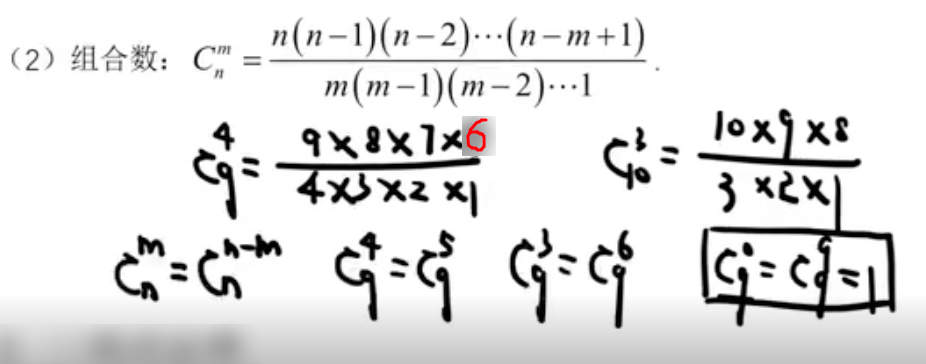 （2）组合数：C_n^m = n(n−1)(n−2)⋯(n−m+1) / m(m−1)(m−2)⋯1 .
C_9^4 = 9×8×7×6 / 4×3×2×1    C_10^3 = 10×9×8 / 3×2×1
C_n^m = C_n^{n-m}    C_9^4 = C_9^5    C_9^3 = C_9^6    C_9^0 = C_9^9 = 1